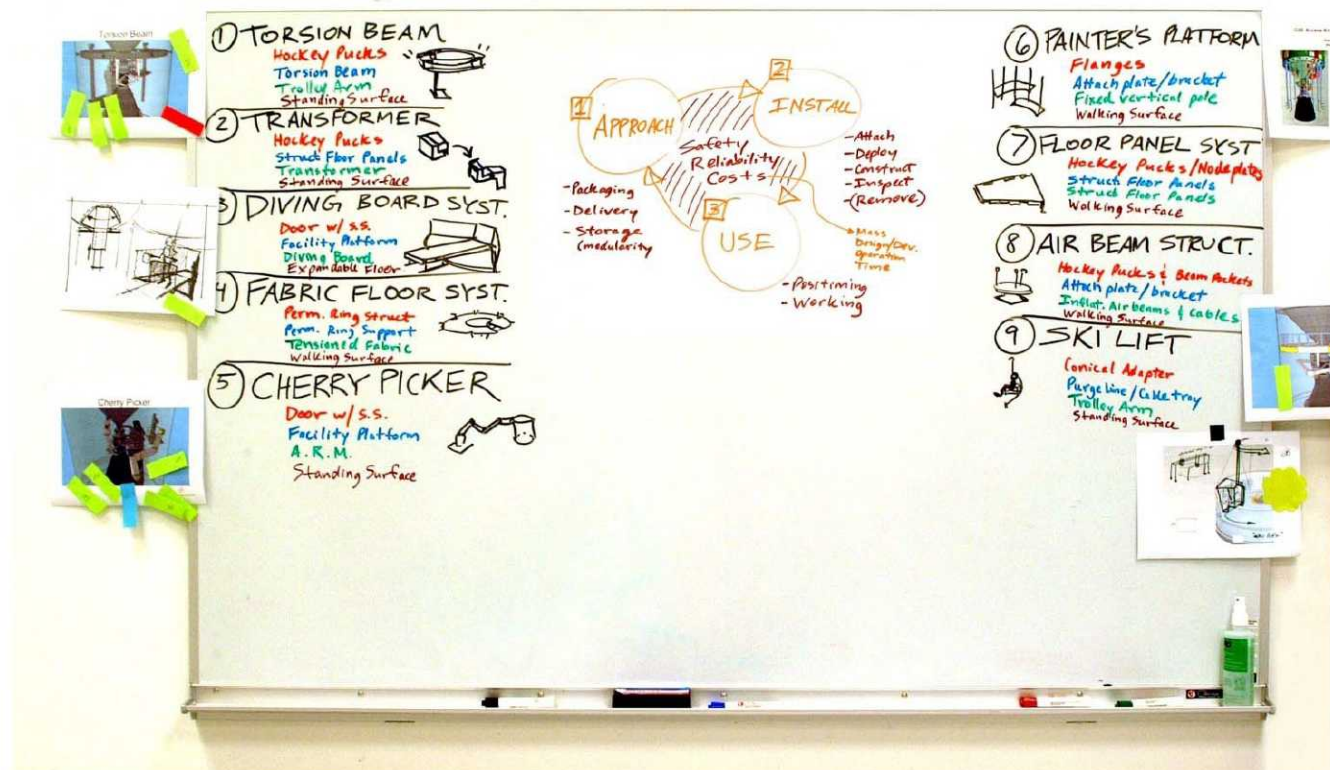 Torsion Beam
① TORSION BEAM
Hockey Pucks
Torsion Beam
Trolley Arm
Standing Surface
② TRANSFORMER
Hockey Pucks
Struct Floor Panels
Transformer
Standing Surface
3 DIVING BOARD SYST.
Door w/ s.s.
Facility Platform
Diving Board
Expandable Floor
4 FABRIC FLOOR SYST.
Perm. Ring Struct
Perm. Ring Support
Tensioned Fabric
Walking Surface
⑤ CHERRY PICKER
Door w/ s.s.
Facility Platform
A.R.M.
Standing Surface
Cherry Picker
1
APPROACH
- Packaging
- Delivery
- Storage
(modularity
2
INSTALL
- Attach
- Deploy
- Construct
- Inspect
- (Remove)
Safety
Reliability
Costs
Mass
Design/Dev.
Operation
Time
3
USE
- Positiming
- Working
⑥ PAINTER'S PLATFORM
Flanges
Attach plate/bracket
Fixed vertical pole
Walking Surface
⑦ FLOOR PANEL SYST
Hockey Pucks/Nodeplates
Struct Floor Panels
Struct Floor Panels
Walking Surface
⑧ AIR BEAM STRUCT.
Hockey Pucks & Beam Pockets
Attach plate/bracket
Inflat. Air beams & cables
Walking Surface
⑨ SKI LIFT
Conical Adapter
Purge line/Cable tray
Trolley Arm
Standing Surface